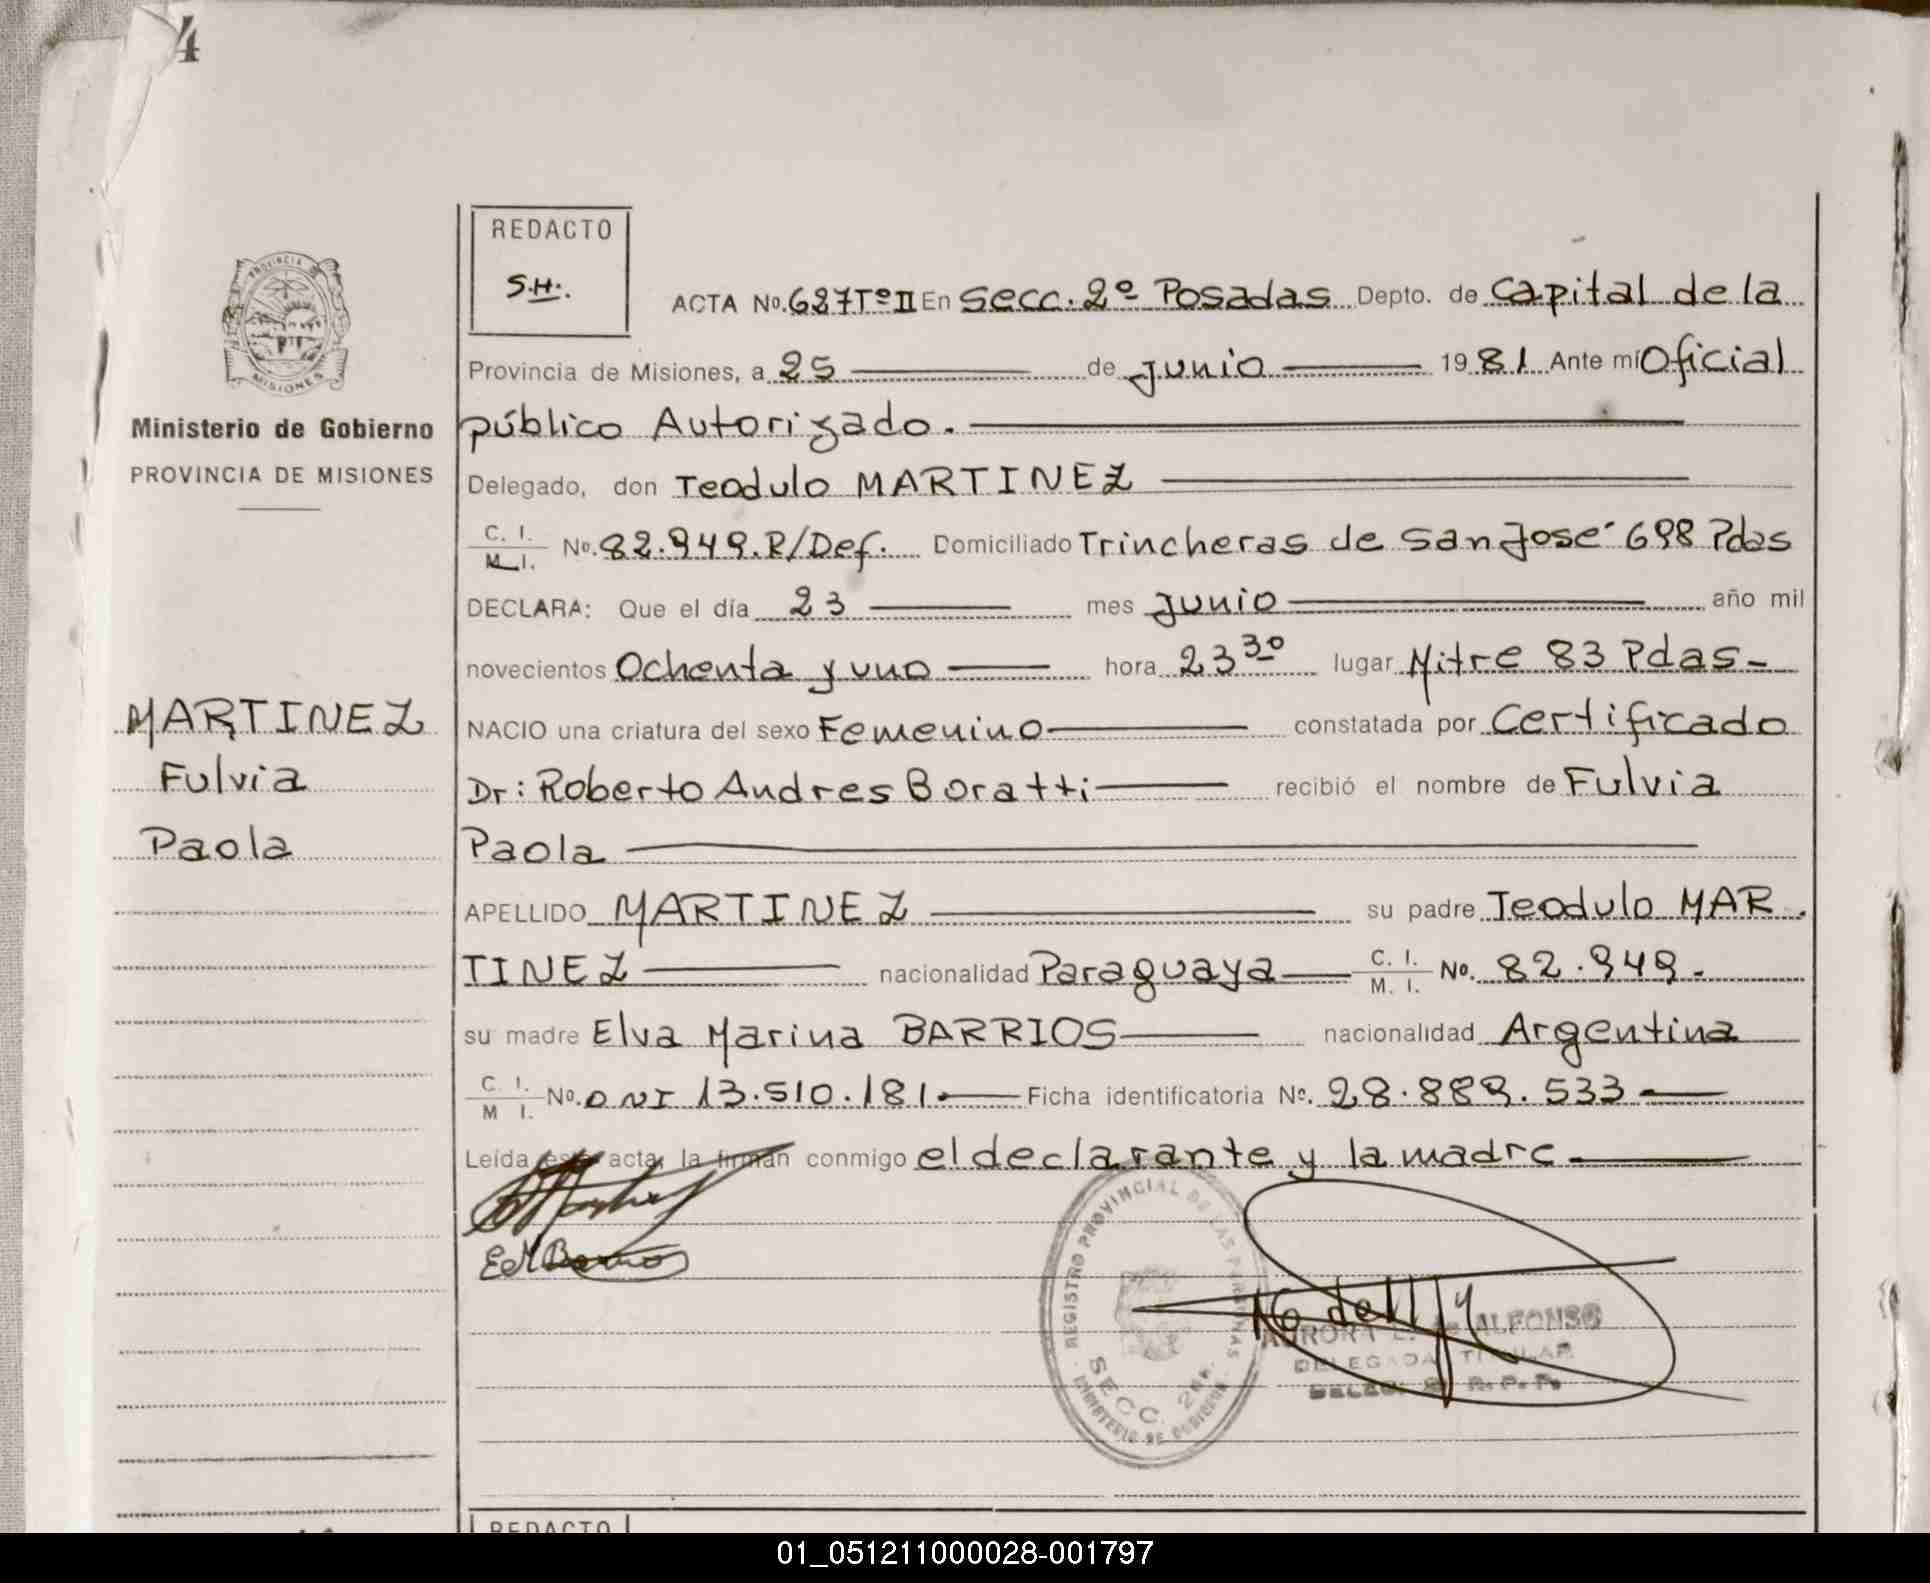 4
REDACTO
S.H.
ACTA No. 687 Tº II En Secc. 2º Posadas Depto. de Capital de la
Provincia de Misiones, a 25 de junio 1981 Ante mí Oficial
público Autorizado.
Ministerio de Gobierno
PROVINCIA DE MISIONES
Delegado, don Teodulo MARTINEZ
C. I. M. I. No. 82.949. R/Def. Domiciliado Trincheras de San José 698 Pdas
DECLARA: Que el día 23 mes junio año mil
novecientos Ochenta y uno hora 23 30 lugar Mitre 83 Pdas-
MARTINEZ
Fulvia
Paola
NACIO una criatura del sexo Femenino constatada por Certificado
Dr: Roberto Andres Boratti recibió el nombre de Fulvia
Paola
APELLIDO MARTINEZ su padre Teodulo MAR
TINEZ nacionalidad Paraguaya C. I. M. I. No. 82.949.
su madre Elva Marina BARRIOS nacionalidad Argentina
C. I. M I. No. DNI 13.510.181. Ficha identificatoria Nº. 28.889.533
Leída esta acta, la firman conmigo el declarante y la madre
EMBarrios
REGISTRO PROVINCIAL DE LAS PERSONAS
SECC. 2da.
MINISTERIO DE GOBIERNO
AURORA ALFONSO
DELEGADA TITULAR
R. P. P.
REDACTO
01_051211000028-001797